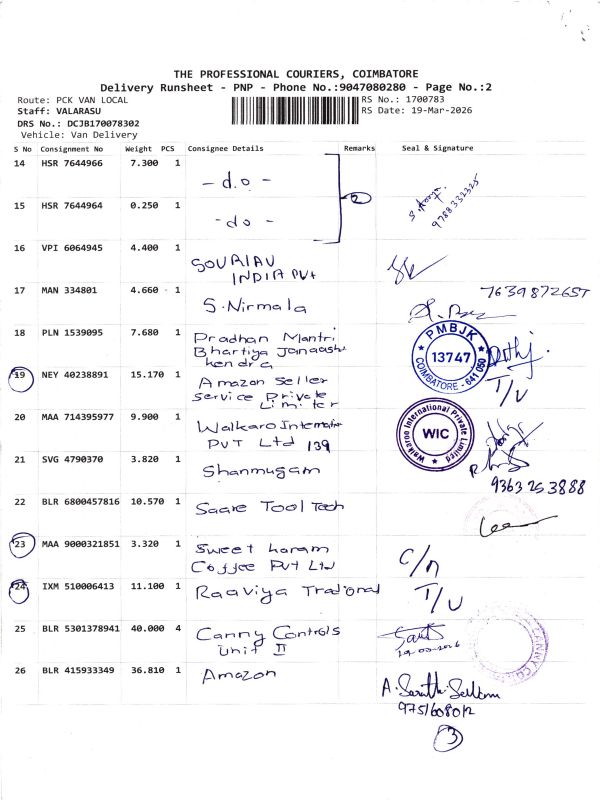 THE PROFESSIONAL COURIERS, COIMBATORE
Delivery Runsheet - PNP - Phone No.:9047080280 - Page No.:2
Route: PCK VAN LOCAL
RS No.: 1700783
Staff: VALARASU
RS Date: 19-Mar-2026
DRS No.: DCJB170078302
Vehicle: Van Delivery
S No Consignment No Weight PCS Consignee Details Remarks Seal & Signature
14 HSR 7644966 7.300 1 - d.o -
2
15 HSR 7644964 0.250 1 - do -
9788332325
16 VPI 6064945 4.400 1 SOURIAU
INDIA PVt
17 MAN 334801 4.660 1 S.Nirmala
7639872657
18 PLN 1539095 7.680 1 Pradhan Mantri
Bhartiya Janaushi
kendra
PMBJK
13747
COIMBATORE - 641 050
19 NEY 40238891 15.170 1 Amazon Seller
Service Private
Limiter
T/U
20 MAA 714395977 9.900 1 Walkaro Internation
PVT Ltd 139
Walkaroo International Private Limited
WIC
21 SVG 4790370 3.820 1 Shanmugam
9363253888
22 BLR 6800457816 10.570 1 Saare Tool Tech
23 MAA 9000321851 3.320 1 Sweet karam
Coffee PVT Ltd
C/n
24 IXM 510006413 11.100 1 Raaviya Trational
T/U
25 BLR 5301378941 40.000 4 Canny Controls
Unit II
26 BLR 415933349 36.810 1 Amazon
9751608012
3